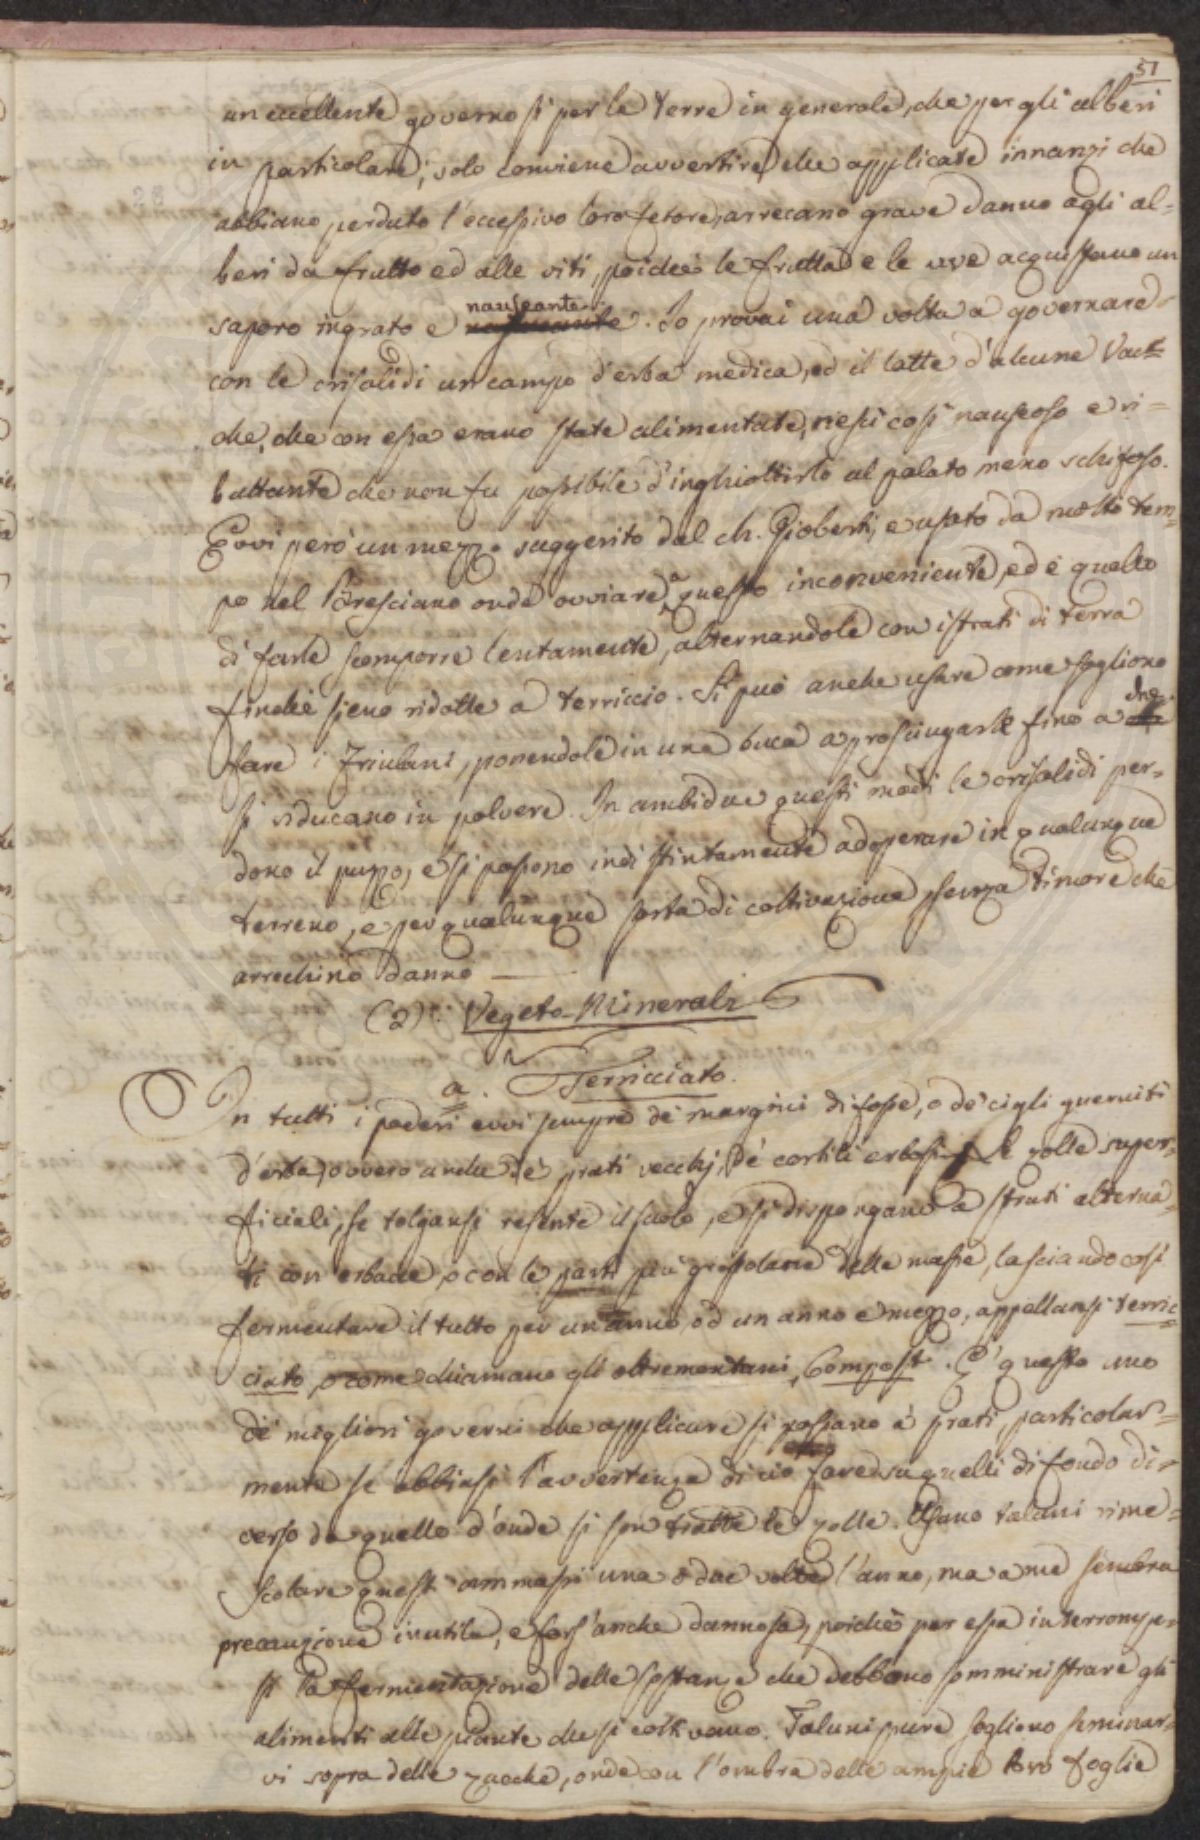 51
un eccellente governo sì per le terre in generale, che per gli alberi
in particolare; solo conviene avvertire che applicate innanzi che
abbiano perduto l'eccessivo loro fetore, arrecano grave danno agli al=
beri da frutto ed alle viti, poichè le frutta e le uve acquistano un
sapore ingrato e nauseante. Io provai una volta a governare
con le crisalidi un campo d'erba medica, ed il latte d'alcune vac=
che, che con essa erano state alimentate, riescì così nauseoso e ri=
buttante che non fu possibile d'inghiottirlo al palato meno schifoso.
Evvi però un mezzo suggerito dal ch. Gioberti, e usato da molto tem=
po nel Bresciano onde ovviare a questo inconveniente, ed è quello
di farle scomporre lentamente, alternandole con istrati di terra
finchè sieno ridotte a terriccio. Si può anche usare come sogliono
fare i Friulani, ponendole in una buca a prosciugarle fino a che
si riducano in polvere. In ambidue questi modi le crisalidi per=
dono il puzzo, e si possono indistintamente adoperare in qualunque
terreno, e per qualunque sorta di coltivazione senza timore che
arrechino danno
(2)°: Vegeto-Minerali
a. Terricciato.
In tutti i poderi evvi sempre de' margini di fosse, o de' cigli guerniti
d'erba, ovvero anche de' prati vecchj, de' cortili erbosi. Le zolle super=
ficiali, se tolgansi resente il suolo, e si dispongano a strati alterna=
ti con erbacce, o con le parti più grossolane delle masse, lasciando così
fermentare il tutto per un anno, od un anno e mezzo, appellansi terric=
ciato, o come chiamano gli oltremontani, Compost. E' questo uno
de' migliori governi che applicare si possano a' prati, particolar=
mente se abbiasi l'avvertenza di ciò fare su quelli di fondo di=
verso da quello d'onde si son tratte le zolle. Usano taluni rime=
scolare questi ammassi una o due volte l'anno, ma a me sembra
precauzione inutile, e fors'anche dannosa, poichè per essa interrompe=
si la fermentazione delle sostanze che debbono somministrare gli
alimenti alle piante che si coltivano. Taluni pure sogliono seminar=
vi sopra delle zucche, onde con l'ombra delle ampie loro foglie